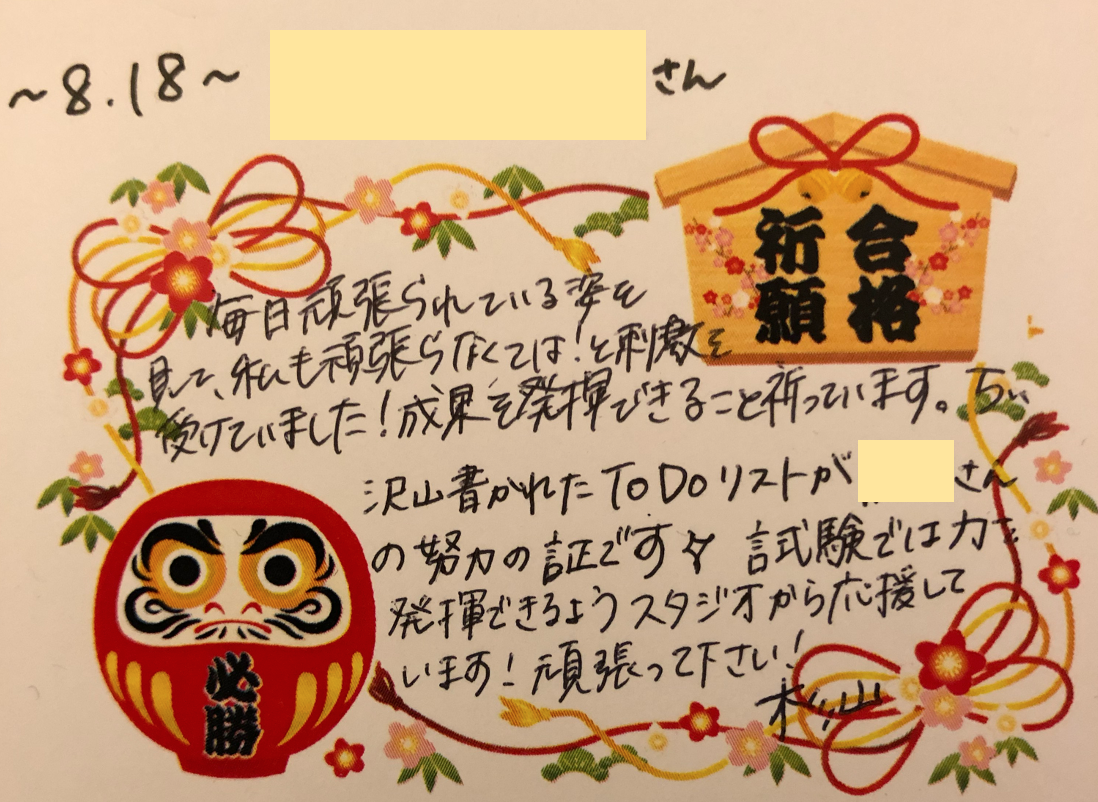 ~8.18~ さん
合格
祈願
毎日頑張られている姿を
見て、私も頑張らなくては！と刺激を
受けていました！成果を発揮できること祈っています。
沢山書かれた ToDoリストが さん
の努力の証です 試験では力を
発揮できるようスタジオから応援して
います！頑張って下さい！
必勝